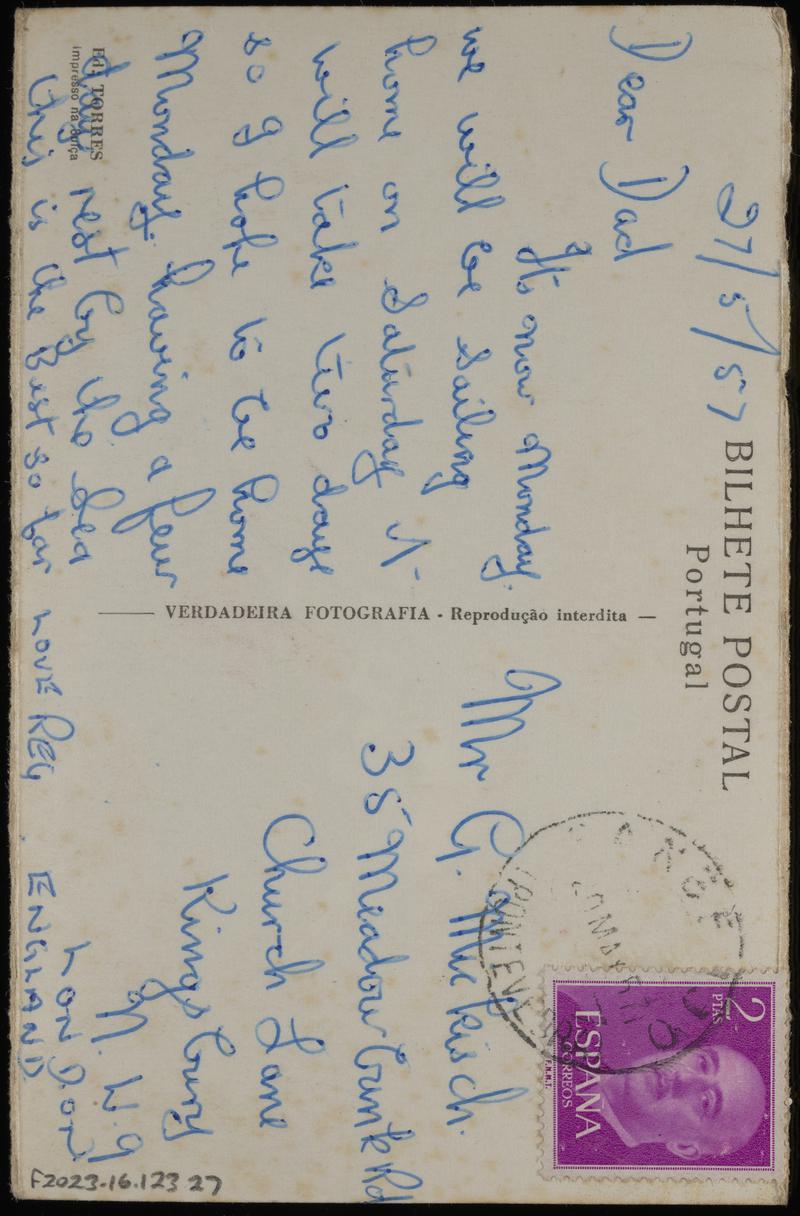 BILHETE POSTAL
Portugal
27/5/57
Dear Dad
It's now Monday.
we will be sailing
home on Saturday it
will take two days
so I hope to be home
Monday. having a few
days rest by the Sea
this is the Best so far LOVE REG
Ed. TORRES
Impresso na Suíça
VERDADEIRA FOTOGRAFIA - Reprodução interdita
Mr G.
35 Meadow Bank Rd
Church Lane
Kingsbury
N. W. 9
LONDON
ENGLAND.
2
PTAS
ESPAÑA
CORREOS
F2023.16.123 27